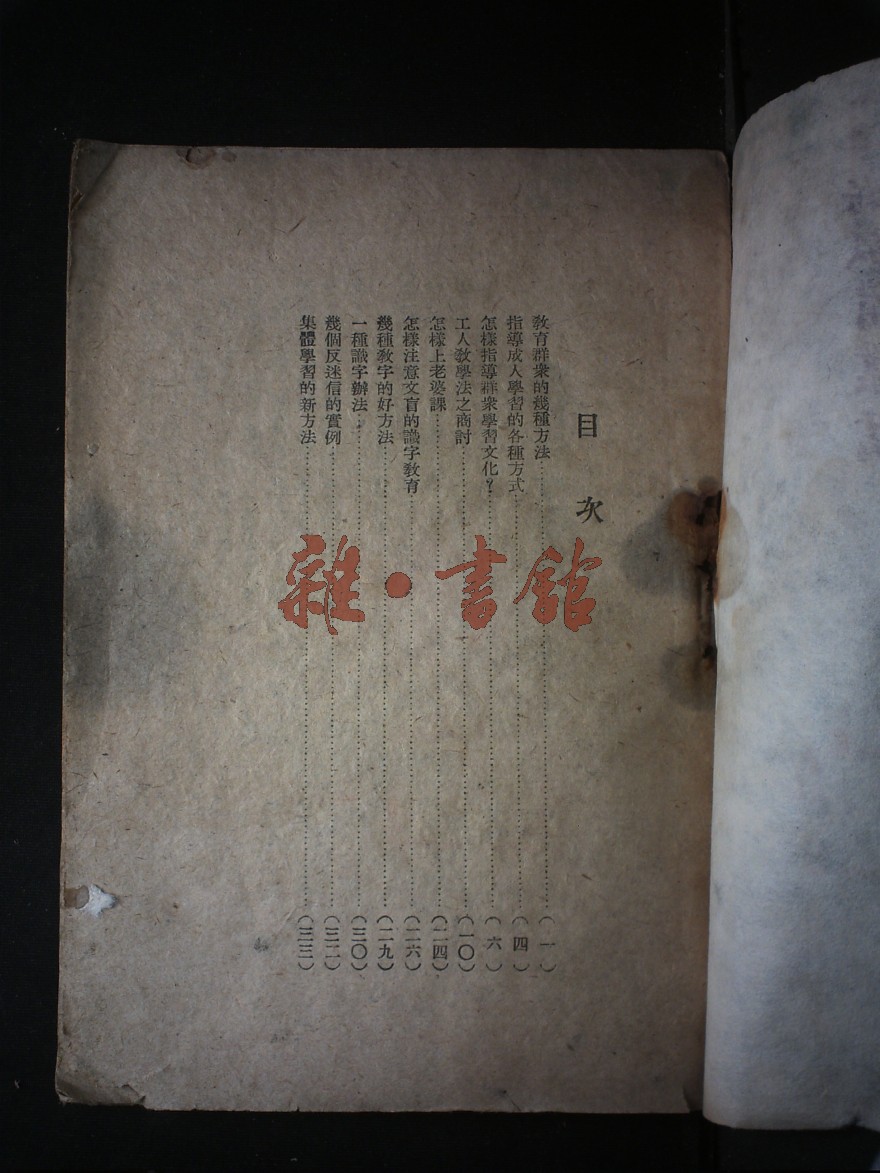 目次
教育群衆的幾種方法……(一)
指導成人學習的各種方式……(四)
怎樣指導群衆學習文化?……(六)
工人教學法之商討……(一〇)
怎樣上老婆課……(二四)
怎樣注意文盲的識字教育……(二六)
幾種教字的好方法……(二九)
一種識字辦法……(三〇)
幾個反迷信的實例……(三二)
集體學習的新方法……(三三)
雜·書館